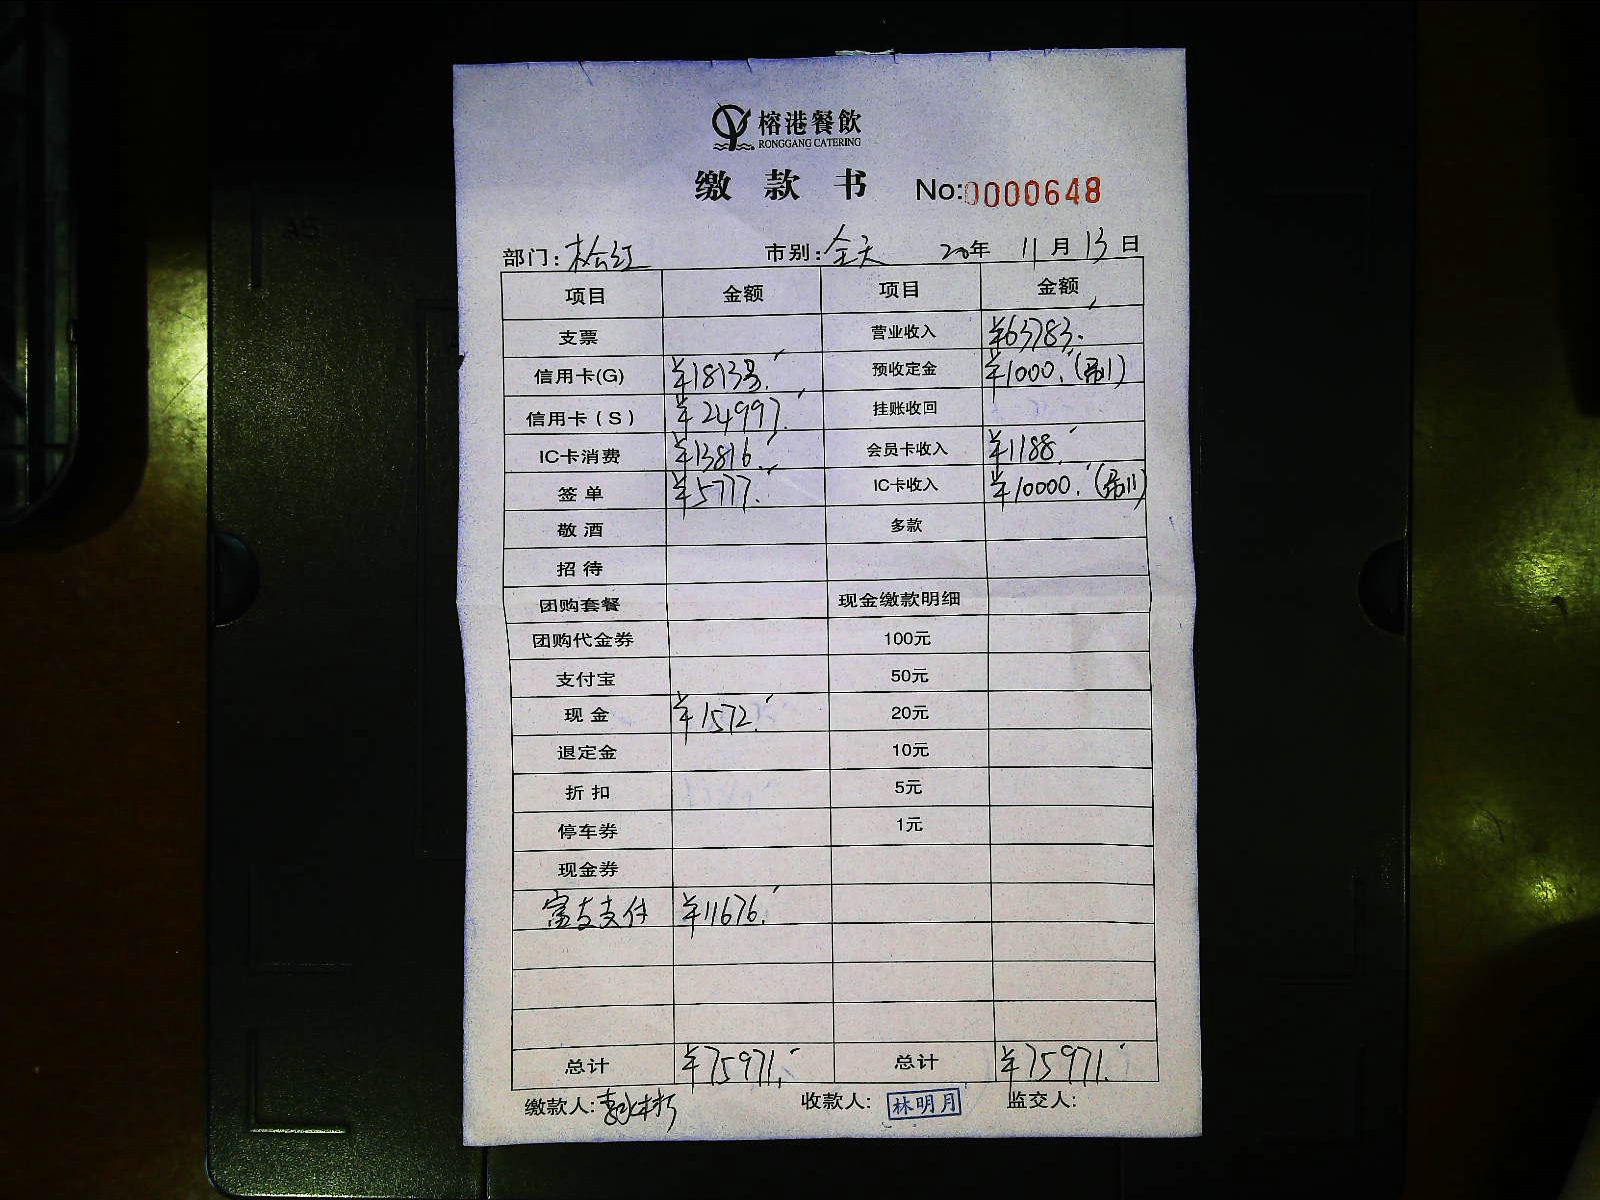 榕港餐飲
RONGGANG CATERING
缴款书 No:0000648
部门:桧红 市别:全天 20年 11月 13日
项目 金额 项目 金额
支票 营业收入 ¥63783.
信用卡(G) ¥18133. 预收定金 ¥1000.
信用卡(S) ¥24997. 挂账收回
IC卡消费 ¥13816. 会员卡收入 ¥1188.
签单 ¥5777. IC卡收入 ¥10000.
敬酒 多款
招待
团购套餐 现金缴款明细
团购代金券 100元
支付宝 50元
现金 ¥1572. 20元
退定金 10元
折扣 5元
停车券 1元
现金券
富友支付 ¥11676.
总计 ¥75971. 总计 ¥75971.
缴款人: 收款人: 林明月 监交人: